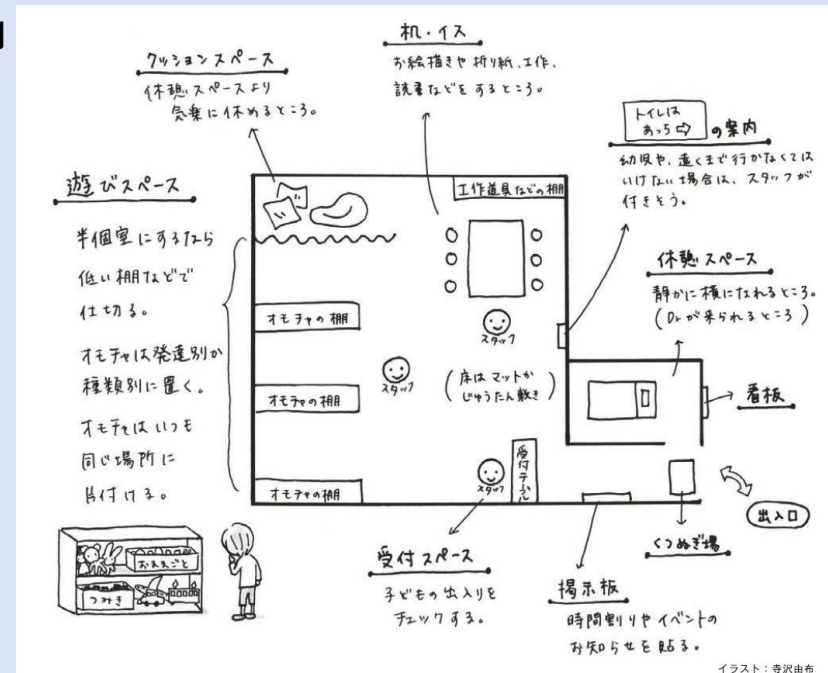 クッションスペース
休憩スペースより
気楽に休めるところ。
机・イス
お絵描きや折り紙、工作、
読書などをするところ。
トイレは
あっち⇨
の案内
幼児や、遠くまで行かなくては
いけない場合は、スタッフが
付きそう。
遊びスペース
半個室にするなら
低い棚などで
仕切る。
オモチャは発達別か
種類別に置く。
オモチャはいつも
同じ場所に
片付ける。
工作道具などの棚
オモチャの棚
オモチャの棚
オモチャの棚
スタッフ
スタッフ
スタッフ
(床はマットか
じゅうたん敷き)
受付テーブル
休憩スペース
静かに横になれるところ。
(Drが来られるところ)
看板
出入口
くつぬぎ場
掲示板
時間割りやイベントの
お知らせを貼る。
受付スペース
子どもの出入りを
チェックする。
おままごと
つみき
イラスト:寺沢由布